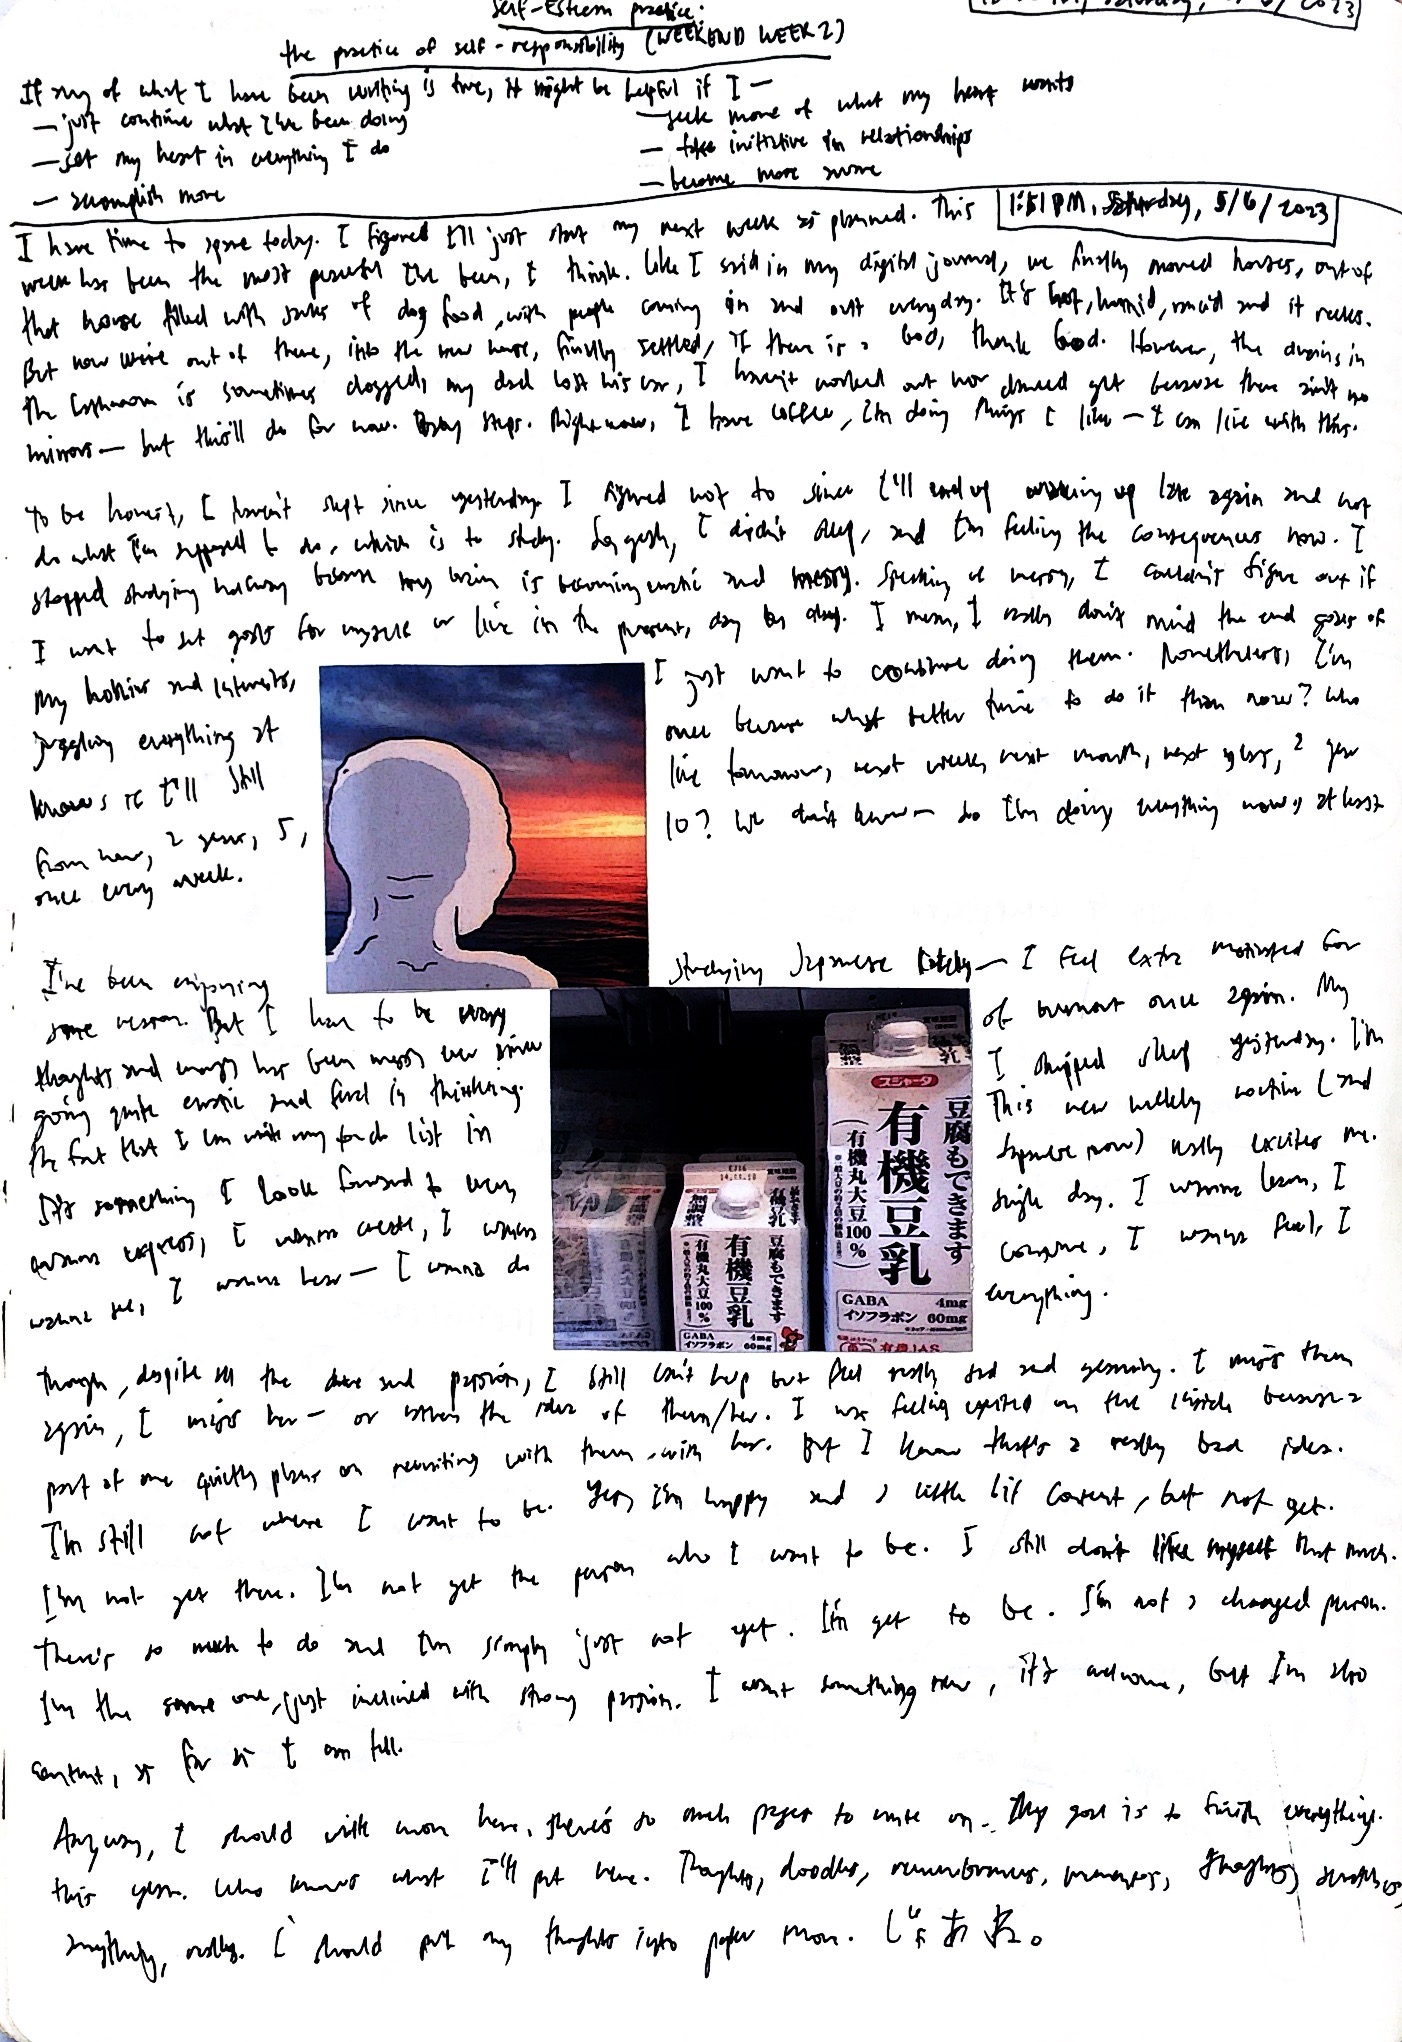 Self-Esteem practice:
the practice of self-responsibility (WEEKEND WEEK 2)
If any of what I have been writing is true, it might be helpful if I —
— just continue what I've been doing
— set my heart in everything I do
— accomplish more
— seek more of what my heart wants
— take initiative in relationships
— become more aware
1:51 PM, Saturday, 5/6/2023
I have time to spare today. I figured I'll just start my next week as planned. This
week has been the most peaceful I've been, I think. Like I said in my digital journal, we finally moved houses, out of
that house filled with sacks of dog food, with people coming in and out everyday. It's hot, humid, rancid and it reeks.
But now we're out of there, into the new house, finally settled, if there is a God, thank God. However, the drains in
the bathroom is sometimes clogged, my dad lost his car, I haven't worked out nor danced yet because there ain't no
mirrors — but this'll do for now. Baby steps. Right now, I have coffee, I'm doing things I like — I can live with this.
To be honest, I haven't slept since yesterday. I figured not to since I'll end up waking up late again and not
do what I'm supposed to do, which is to study. So yeah, I didn't sleep, and I'm feeling the consequences now. I
stopped studying halfway because my brain is becoming erratic and messy. Speaking of messy, I couldn't figure out if
I want to set goals for myself or live in the present, day by day. I mean, I really don't mind the end goals of
my hobbies and interests, I just want to continue doing them. Nonetheless, I'm
juggling everything at once because what better time to do it than now? Who
knows if I'll still live tomorrow, next week, next month, next year, 2 year
from now, 2 years, 5, 10? We don't know — so I'm doing everything now, at least
once every week.
I've been enjoying studying Japanese lately — I feel extra motivated for
some reason. But I have to be wary of burnout once again. My
thoughts and energy has been messy ever since I skipped sleep yesterday. I'm
going quite erratic and fast in thinking. This new weekly routine (and
the fact that I can write my to-do list in Japanese now) really excites me.
It's something I look forward to every single day. I wanna learn, I
wanna express, I wanna create, I wanna consume, I wanna feel, I
wanna see, I wanna hear — I wanna do everything.
スジャータ
有機豆乳
豆腐もできます
(有機丸大豆100%)
無調整
GABA 4mg
イソフラボン 60mg
有機JAS
有機豆乳
豆腐もできます
(有機丸大豆100%)
無調整
GABA 4mg
イソフラボン 60mg
Though, despite all the and passion, I still can't help but feel really sad and yearning. I miss them
again, I miss her — or rather the idea of them/her. I was feeling excited on the inside because a
part of me quietly plans on reuniting with them, with her. But I know that's a really bad idea.
I'm still not where I want to be. Yes, I'm happy and a little bit content, but not yet.
I'm not yet there. I'm not yet the person who I want to be. I still don't like myself that much.
There's so much to do and I'm simply just not yet. I'm yet to be. I'm not a changed person.
I'm the same one, just inclined with strong passion. I want something new, it's welcome, but I'm also
content, as far as I can tell.
Anyway, I should write more here, there's so much pages to write on. My goal is to finish everything
this year. Who knows what I'll put here. Thoughts, doodles, remembrances, memories,
anything, really. I should put my thoughts into paper more. じゃあね。